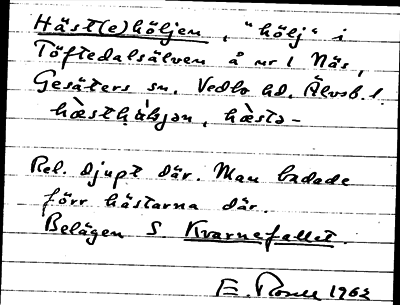 Häst(e)höljen, "hölj" i
Töftedalsälven å nr 1 Näs,
Gesäters sn. Vedbo hd. Älvsb. l.
Rel. djupt där. Man badade
förr hästarna där.
Belägen S Kvarnefallet.
E. 1962